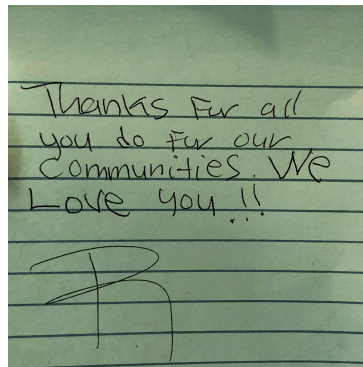 Thanks For all
you do For our
communities. We
Love you!!
R